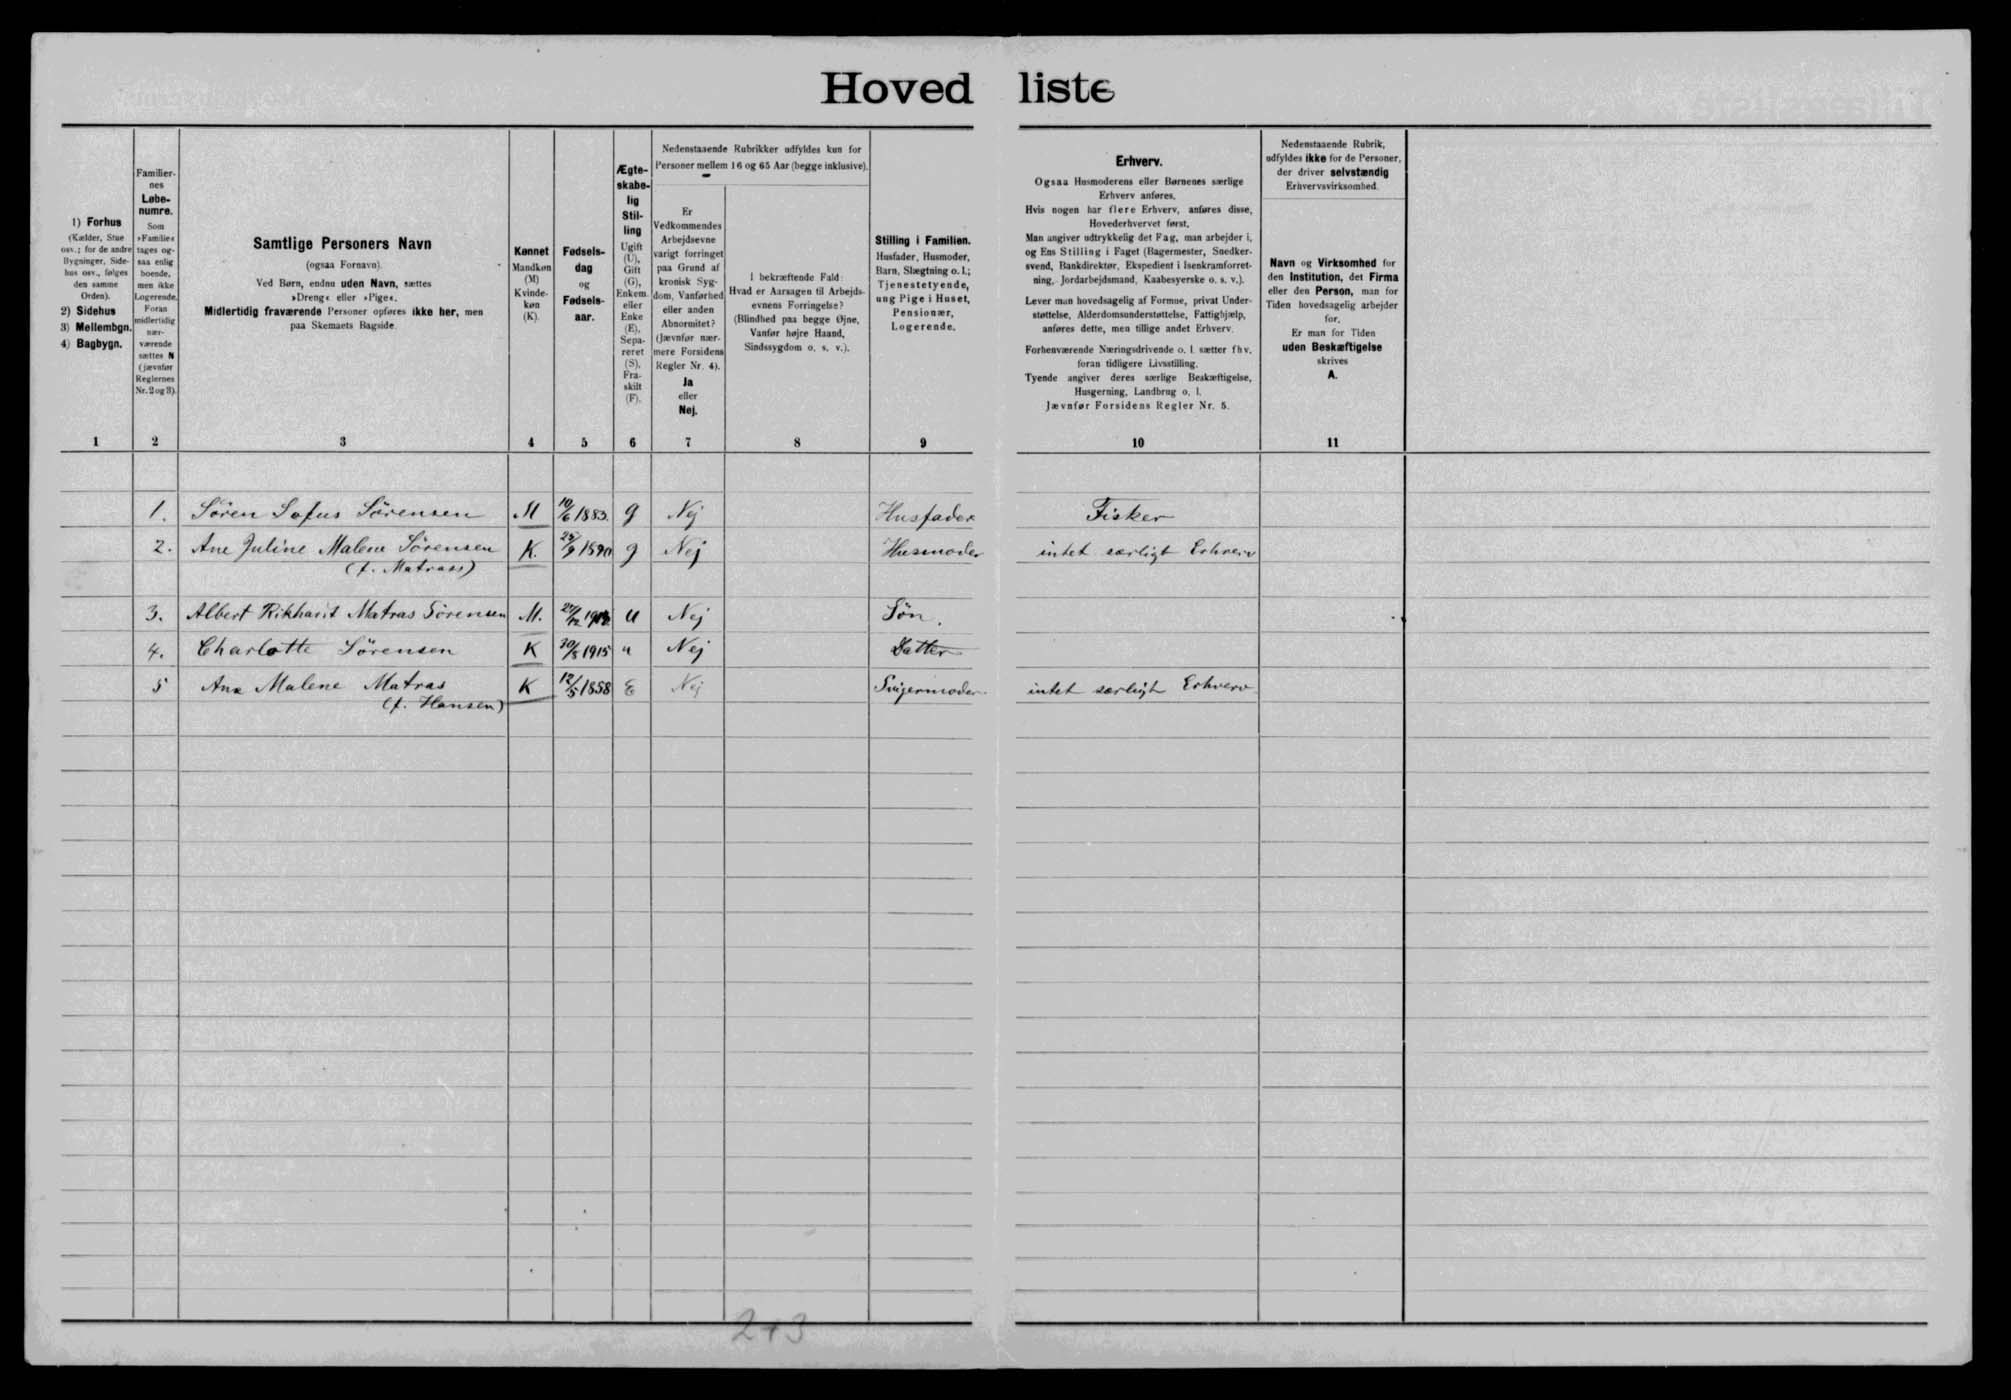 Hovedliste
1) Forhus
(Kælder, Stue
osv.; for de andre
Bygninger, Side-
hus osv., følges
den samme
Orden).
2) Sidehus
3) Mellembgn.
4) Bagbygn.
1
Familier-
nes
Løbe-
numre.
Som
»Familie«
tages og-
saa enlig
boende,
men ikke
Logerende.
Foran
midlertidig
nær-
værende
sættes N
(jævnfør
Reglernes
Nr. 2 og 3).
2
Samtlige Personers Navn
(ogsaa Fornavn).
Ved Børn, endnu uden Navn, sættes
»Dreng« eller »Pige«.
Midlertidig fraværende Personer opføres ikke her, men
paa Skemaets Bagside.
3
Kønnet
Mandkøn
(M)
Kvinde-
køn
(K).
4
Fødsels-
dag
og
Fødsels-
aar.
5
Ægte-
skabe-
lig
Stil-
ling
Ugift
(U),
Gift
(G),
Enkem.
eller
Enke
(E),
Sepa-
reret
(S),
Fra-
skilt
(F).
6
Nedenstaaende Rubrikker udfyldes kun for
Personer mellem 16 og 65 Aar (begge inklusive).
Er
Vedkommendes
Arbejdsevne
varigt forringet
paa Grund af
kronisk Syg-
dom, Vanførhed
eller anden
Abnormitet?
(Jævnfør nær-
mere Forsidens
Regler Nr. 4).
Ja
eller
Nej.
7
I bekræftende Fald:
Hvad er Aarsagen til Arbejds-
evnens Forringelse?
(Blindhed paa begge Øjne,
Vanfør højre Haand,
Sindssygdom o. s. v.).
8
Stilling i Familien.
Husfader, Husmoder,
Barn, Slægtning o. l.;
Tjenestetyende,
ung Pige i Huset,
Pensionær,
Logerende.
9
Erhverv.
Ogsaa Husmoderens eller Børnenes særlige
Erhverv anføres.
Hvis nogen har flere Erhverv, anføres disse,
Hovederhvervet først.
Man angiver udtrykkelig det Fag, man arbejder i,
og Ens Stilling i Faget (Bagermester, Snedker-
svend, Bankdirektør, Ekspedient i Isenkramforret-
ning, Jordarbejdsmand, Kaabesyerske o. s. v.).
Lever man hovedsagelig af Formue, privat Under-
støttelse, Alderdomsunderstøttelse, Fattighjælp,
anføres dette, men tillige andet Erhverv.
Forhenværende Næringsdrivende o. l. sætter fhv.
foran tidligere Livsstilling.
Tyende angiver deres særlige Beskæftigelse,
Husgerning, Landbrug o. l.
Jævnfør Forsidens Regler Nr. 5.
10
Nedenstaaende Rubrik,
udfyldes ikke for de Personer,
der driver selvstændig
Erhvervsvirksomhed.
Navn og Virksomhed for
den Institution, det Firma
eller den Person, man for
Tiden hovedsagelig arbejder
for.
Er man for Tiden
uden Beskæftigelse
skrives
A.
11
1. Sören Sofus Sörensen M 10/6 1883. g Nej Husfader Fisker
2. Ane Juline Malene Sörensen K. 1890 g Nej Husmoder intet særligt Erhverv
(f. Matrass)
3. Albert Rikhard Matras Sörensen M. U Nej Sön.
4. Charlotte Sörensen K 30/8 1915 u Nej Datter
5 Ane Malene Matras K 12/5 1858 E Nej Svigermoder intet særligt Erhverv
(f. Hansen)
2+3